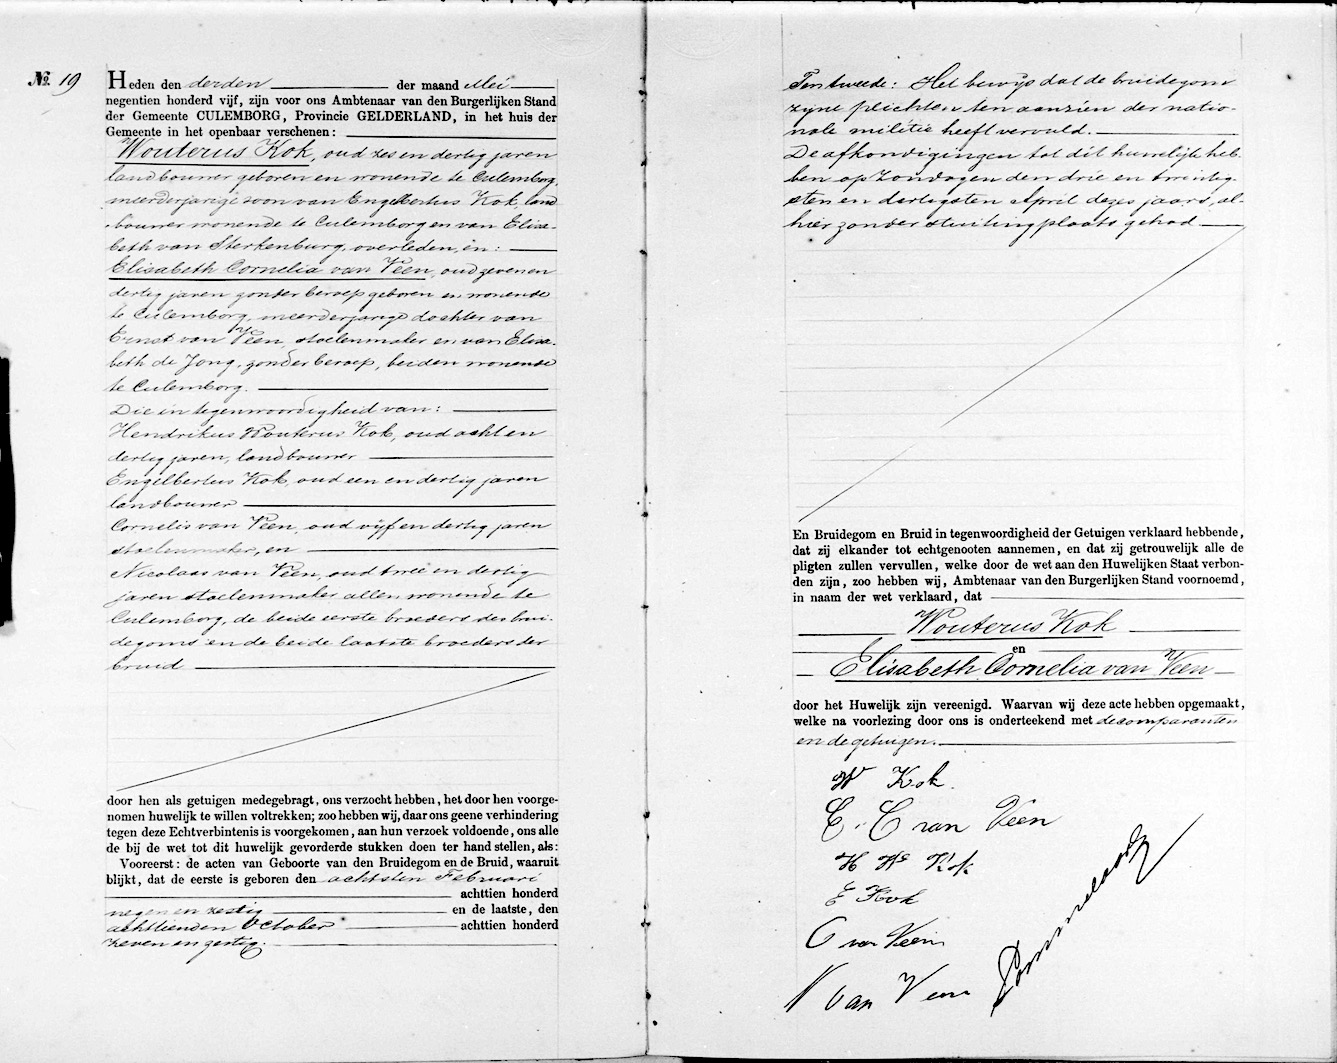 No. 19
Heden den derden der maand Mei
negentien honderd vijf, zijn voor ons Ambtenaar van den Burgerlijken Stand
der Gemeente CULEMBORG, Provincie GELDERLAND, in het huis der
Gemeente in het openbaar verschenen:
Wouterus Kok, oud zes en dertig jaren
landbouwer geboren en wonende te Culemborg,
meerderjarige zoon van Engelbertus Kok, land
bouwer wonende te Culemborg en van Elisa-
beth van Sterkenburg, overleden, en:
Elisabeth Cornelia van Veen, oud zeven en
dertig jaren zonder beroep geboren en wonende
te Culemborg, meerderjarige dochter van
Ernst van Veen, stoelenmaker en van Elisa-
beth de Jong, zonder beroep, beiden wonende
te Culemborg.
Die in tegenwoordigheid van:
Hendrikus Wouterus Kok, oud acht en
dertig jaren, landbouwer
Engelbertus Kok, oud een en dertig jaren
landbouwer
Cornelis van Veen, oud vijf en dertig jaren
stoelenmaker, en
Nicolaas van Veen, oud twee en dertig
jaren stoelenmaker allen wonende te
Culemborg, de beide eerste broeders des brui-
degoms en de beide laatste broeders der
bruid
door hen als getuigen medegebragt, ons verzocht hebben, het door hen voorge-
nomen huwelijk te willen voltrekken; zoo hebben wij, daar ons geene verhindering
tegen deze Echtverbintenis is voorgekomen, aan hun verzoek voldoende, ons alle
de bij de wet tot dit huwelijk gevorderde stukken doen ter hand stellen, als:
Vooreerst: de acten van Geboorte van den Bruidegom en de Bruid, waaruit
blijkt, dat de eerste is geboren den achtsten Februari
achttien honderd
negen en zestig en de laatste, den
achttienden October achttien honderd
zeven en zestig.
Ten tweede: Het bewijs dat de bruidegom
zijne plichten ten aanzien der natio-
nale militie heeft vervuld.
De afkondigingen tot dit huwelijk heb-
ben op Zondagen den drie en twintig-
sten en dertigsten April dezes jaars, al-
hier zonder stuiting plaats gehad.
En Bruidegom en Bruid in tegenwoordigheid der Getuigen verklaard hebbende,
dat zij elkander tot echtgenooten aannemen, en dat zij getrouwelijk alle de
pligten zullen vervullen, welke door de wet aan den Huwelijken Staat verbon-
den zijn, zoo hebben wij, Ambtenaar van den Burgerlijken Stand voornoemd,
in naam der wet verklaard, dat
Wouterus Kok
en
Elisabeth Cornelia van Veen
door het Huwelijk zijn vereenigd. Waarvan wij deze acte hebben opgemaakt,
welke na voorlezing door ons is onderteekend met de comparanten
en de getuigen.
W Kok.
E. C van Veen
H W Kok
E Kok
C van Veen
N van Veen